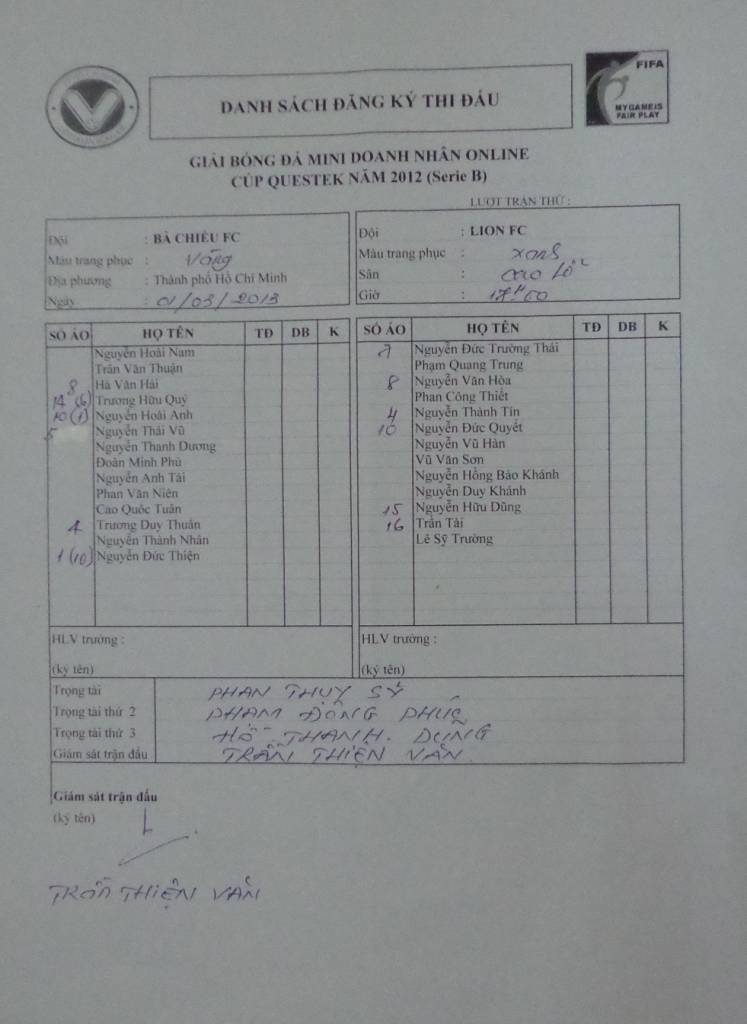 FIFA
MY GAME IS
FAIR PLAY
DANH SÁCH ĐĂNG KÝ THI ĐẤU
GIẢI BÓNG ĐÁ MINI DOANH NHÂN ONLINE
CÚP QUESTEK NĂM 2012 (Serie B)
LƯỢT TRẬN THỨ :
Đội : BÀ CHIỂU FC
Màu trang phục : Vàng
Địa phương : Thành phố Hồ Chí Minh
Ngày : 01/03/2013
Đội : LION FC
Màu trang phục : xanh
Sân : cao lỗ
Giờ : 17H00
SỐ ÁO HỌ TÊN TĐ DB K
Nguyễn Hoài Nam
Trần Văn Thuận
8 Hà Văn Hải
14 (6) Trương Hữu Quý
10 (1) Nguyễn Hoài Anh
5 Nguyễn Thái Vũ
Nguyễn Thanh Dương
Đoàn Minh Phú
Nguyễn Anh Tài
Phan Văn Niên
Cao Quốc Tuấn
4 Trương Duy Thuân
Nguyễn Thành Nhân
1 (10) Nguyễn Đức Thiện
SỐ ÁO HỌ TÊN TĐ DB K
7 Nguyễn Đức Trường Thái
Phạm Quang Trung
8 Nguyễn Văn Hòa
Phan Công Thiết
4 Nguyễn Thành Tín
10 Nguyễn Đức Quyết
Nguyễn Vũ Hàn
Vũ Văn Sơn
Nguyễn Hồng Bảo Khánh
Nguyễn Duy Khánh
15 Nguyễn Hữu Dũng
16 Trần Tài
Lê Sỹ Trường
HLV trưởng :
(ký tên)
HLV trưởng :
(ký tên)
Trọng tài PHAN THUỴ SỸ
Trọng tài thứ 2 PHẠM ĐÔNG PHÚC
Trọng tài thứ 3 HỒ THANH DŨNG
Giám sát trận đấu TRẦN THIỆN VĂN
Giám sát trận đấu
(ký tên)
TRẦN THIỆN VĂN